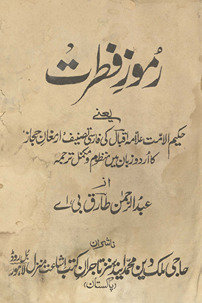 رموزِ فطرت
یعنے
حکیم الامت علامہ اقبال کی فارسی تصنیف ارمغانِ حجاز
کا اردو زبان میں منظوم و مکمل ترجمہ
از
عبدالرحمٰن طارق بی، اے
ناشران
حاجی ملک دین محمد اینڈ سنز تاجران کتب اشاعت منزل بل روڈ لاہور
(پاکستان)